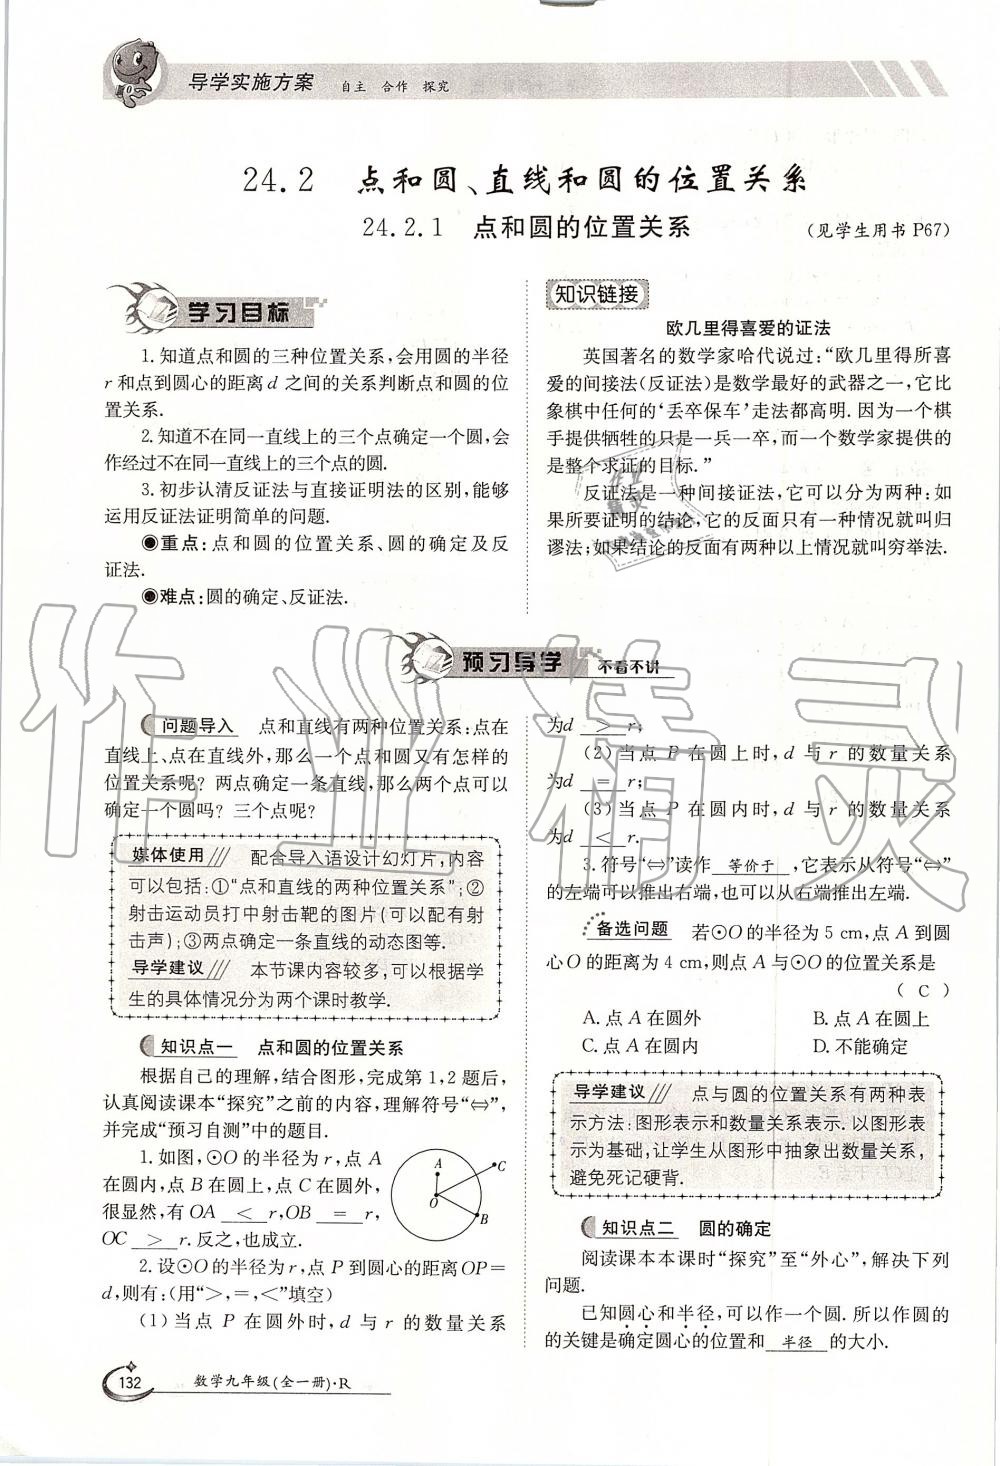 导学实施方案 自主 合作 探究
24.2 点和圆、直线和圆的位置关系
24.2.1 点和圆的位置关系 (见学生用书 P67)
学习目标
1.知道点和圆的三种位置关系,会用圆的半径
r和点到圆心的距离d 之间的关系判断点和圆的位
置关系.
2.知道不在同一直线上的三个点确定一个圆,会
作经过不在同一直线上的三个点的圆.
3.初步认清反证法与直接证明法的区别,能够
运用反证法证明简单的问题.
◉重点:点和圆的位置关系、圆的确定及反
证法.
◉难点:圆的确定、反证法.
知识链接
欧几里得喜爱的证法
英国著名的数学家哈代说过:“欧几里得所喜
爱的间接法(反证法)是数学最好的武器之一,它比
象棋中任何的‘丢卒保车’走法都高明.因为一个棋
手提供牺牲的只是一兵一卒,而一个数学家提供的
是整个求证的目标.”
反证法是一种间接证法,它可以分为两种:如
果所要证明的结论,它的反面只有一种情况就叫归
谬法;如果结论的反面有两种以上情况就叫穷举法.
预习导学 不看不讲
问题导入 点和直线有两种位置关系:点在
直线上、点在直线外,那么一个点和圆又有怎样的
位置关系呢? 两点确定一条直线,那么两个点可以
确定一个圆吗? 三个点呢?
媒体使用 配合导入语设计幻灯片,内容
可以包括:①“点和直线的两种位置关系”;②
射击运动员打中射击靶的图片(可以配有射
击声);③两点确定一条直线的动态图等.
导学建议 本节课内容较多,可以根据学
生的具体情况分为两个课时教学.
知识点一 点和圆的位置关系
根据自己的理解,结合图形,完成第1,2题后,
认真阅读课本“探究”之前的内容,理解符号“⇔”,
并完成“预习自测”中的题目.
1.如图,⊙O的半径为r,点A
在圆内,点B在圆上,点C在圆外,
很显然,有OA < r,OB = r,
OC > r.反之,也成立.
A
C
O
B
2.设⊙O的半径为r,点P到圆心的距离OP=
d,则有:(用“>,=,<”填空)
(1)当点 P 在圆外时,d 与 r 的数量关系
为d > r;
(2)当点 P 在圆上时,d 与 r 的数量关系
为d = r;
(3)当点 P 在圆内时,d 与 r 的数量关系
为d < r.
3.符号“⇔”读作 等价于 ,它表示从符号“⇔”
的左端可以推出右端,也可以从右端推出左端.
备选问题 若⊙O的半径为5 cm,点A到圆
心O的距离为4 cm,则点A与⊙O的位置关系是
( C )
A.点A在圆外 B.点A在圆上
C.点A在圆内 D.不能确定
导学建议 点与圆的位置关系有两种表
示方法:图形表示和数量关系表示.以图形表
示为基础,让学生从图形中抽象出数量关系,
避免死记硬背.
知识点二 圆的确定
阅读课本本课时“探究”至“外心”,解决下列
问题.
已知圆心和半径,可以作一个圆.所以作圆的
的关键是确定圆心的位置和 半径 的大小.
132 数学九年级(全一册)·R
作业精灵